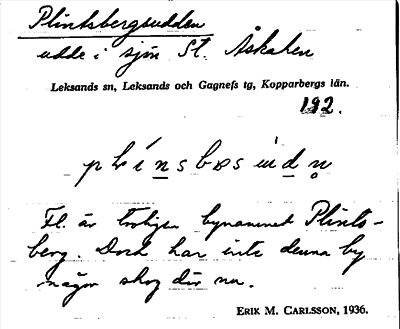 Plintsbergsudden
udde i sjön St. Åskaken
Leksands sn, Leksands och Gagnefs tg, Kopparbergs län.
192.
F.l. är troligen bynamnet Plints-
berg. Dock har inte denna by
någon skog där nu.
ERIK M. CARLSSON, 1936.